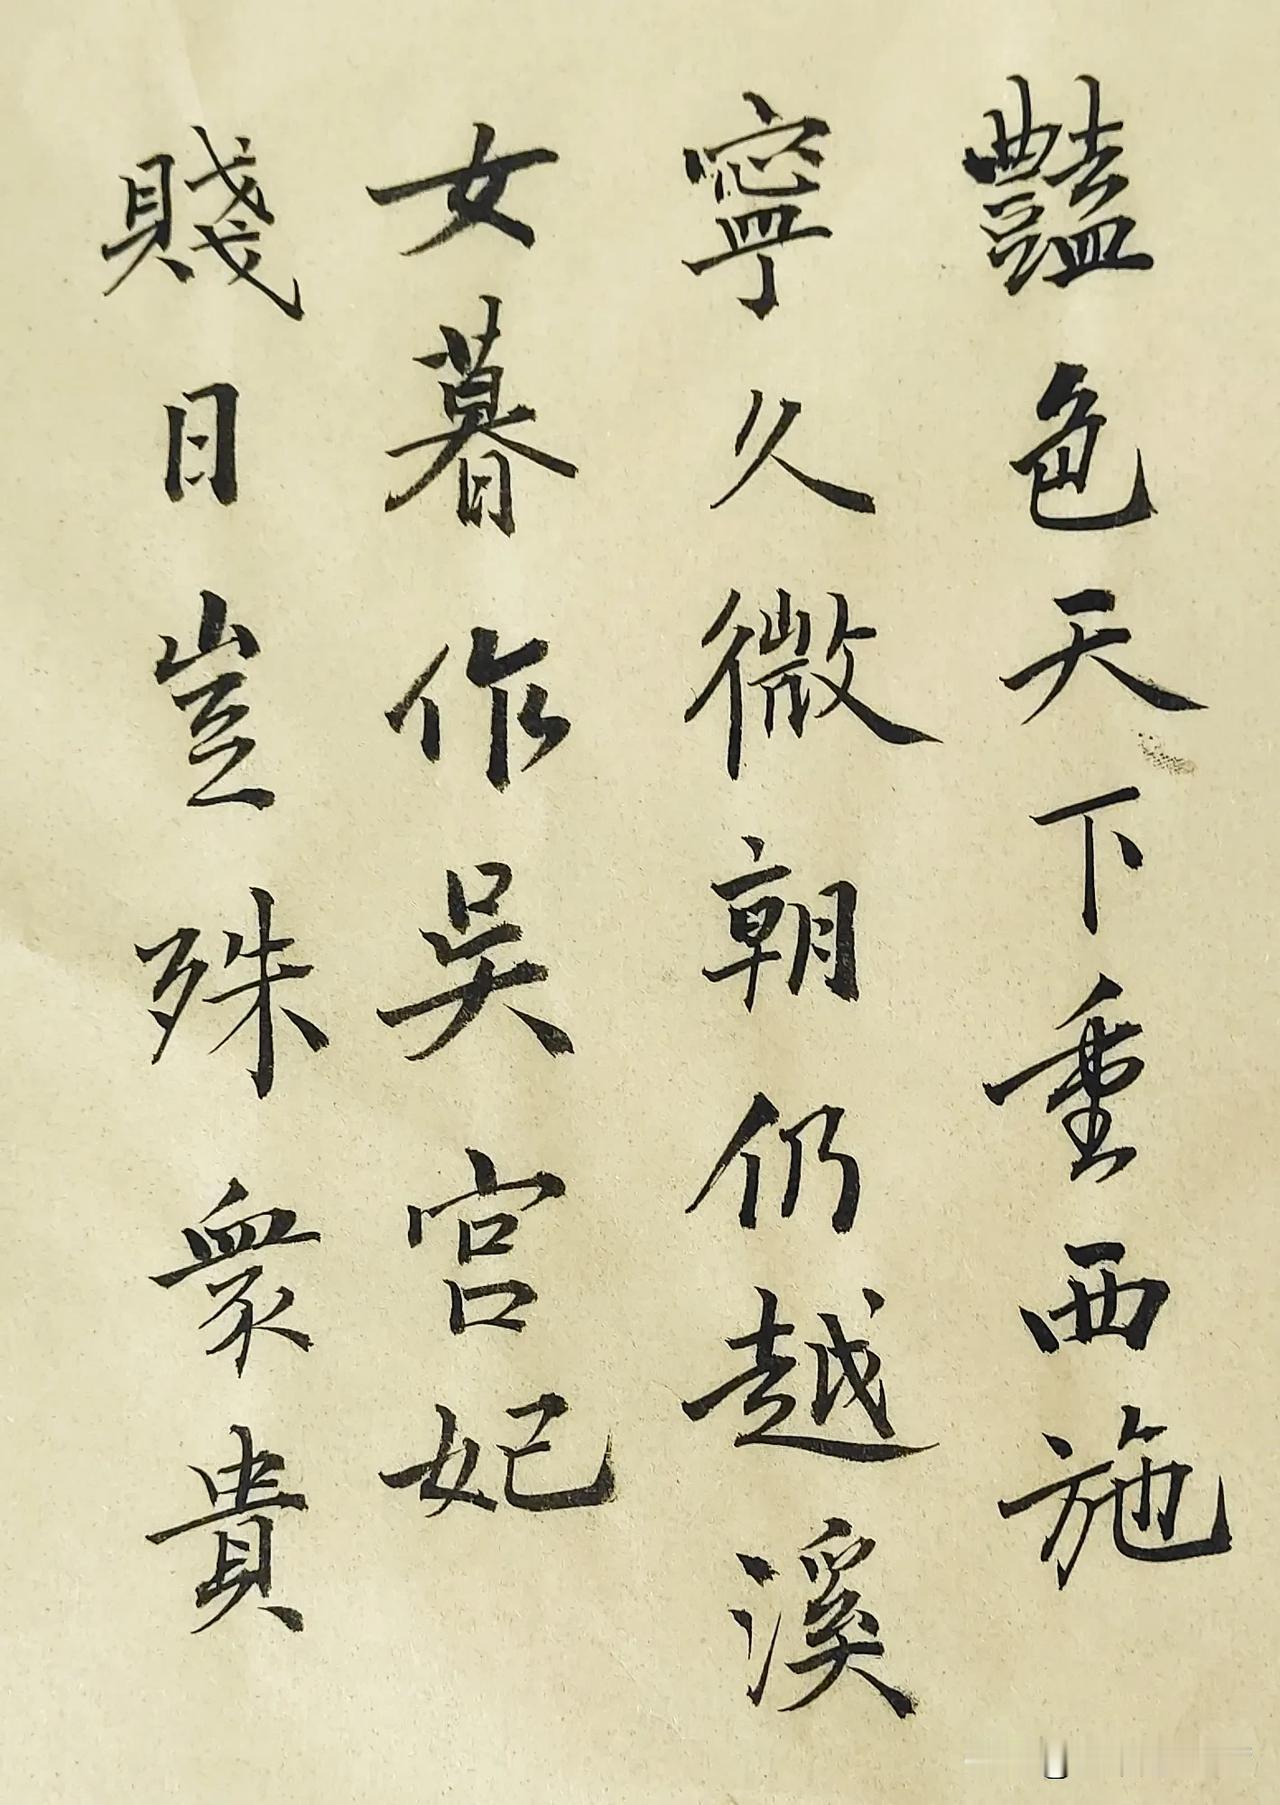 豔色天下重西施
寧久微朝仍越溪
女暮作吳宮妃
賤日豈殊衆貴